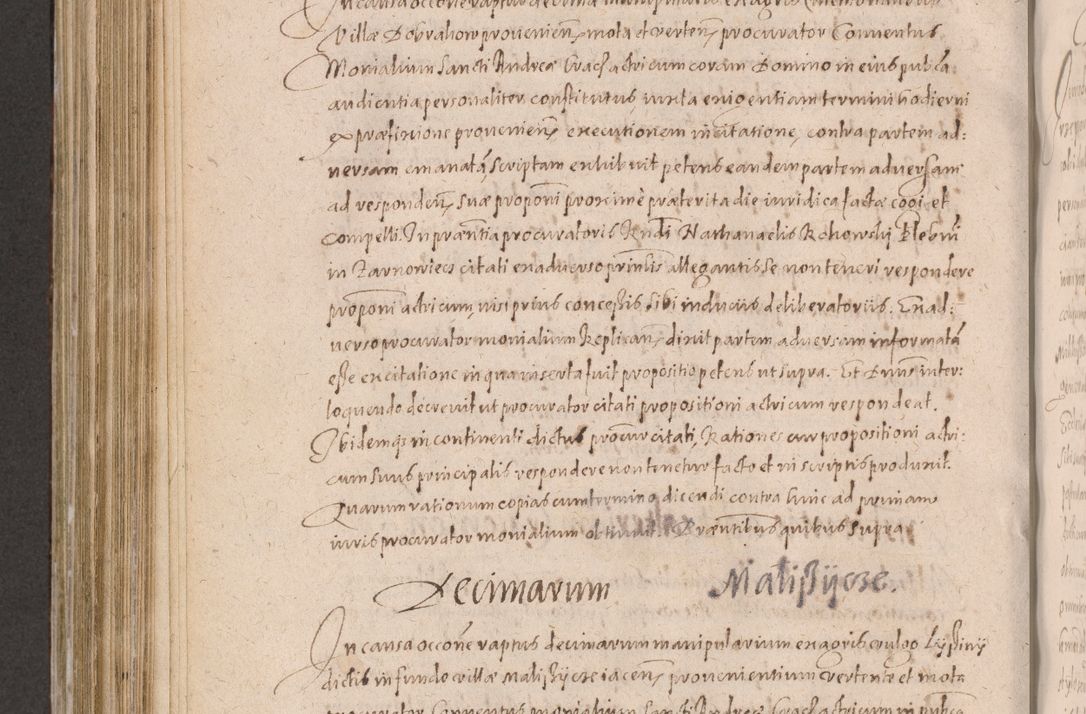 In causa occone raptus decimae manipularis ex agris
Villæ Dobrahow provenien, mota et verten, procurator Conventus
Monialium Sancti Andreæ Crac actricum coram Domino in eius publca
audientia personaliter constitutus iuxta exigentiam termini hodierni
ex præfixione provenien, executionem in citatione, contra partem ad:
versam emanatã, scriptam exhibuit petens eandem partem adversam
ad responden, suæ proponi proxime præterita die iuridica factæ cogi et
compelli. In præntia procuratoris Rndi Nathanaelis Rchowski Plebni
in Zarnowiecz citati ex adverso prinlis allegantis se non teneri respondere
proponi actricum, nisi prius concessis sibi induciis deliberatoriis. Ex ad:
verso procurator monialium Replican, dixit partem adversam informatã
esse ex citatione in qua inserta fuit propositio petens ut supra. Et Dnus inter:
loquendo decrevit ut procurator citati propositioni actricum respondeat.
Ibidemqs in continenti dictus procur citati, Rationes cur propositioni actri:
cum suus principalis respondere non tenetur facto et in scriptis produxit.
Quarum rationum copias cum termino dicendi contra hinc ad primam
iuris procurator monialium obtinuit. Præntibus quibus supra
Decimarum Maliszycze.
In causa occone raptus decimarum manipularium ex agris vulgo Lyssiny
dictis in fundo villæ Maliszycze iacen, provenientium vertente et mota
procurator Conventus monialium Sancti Andreæ Crac actricum in publca